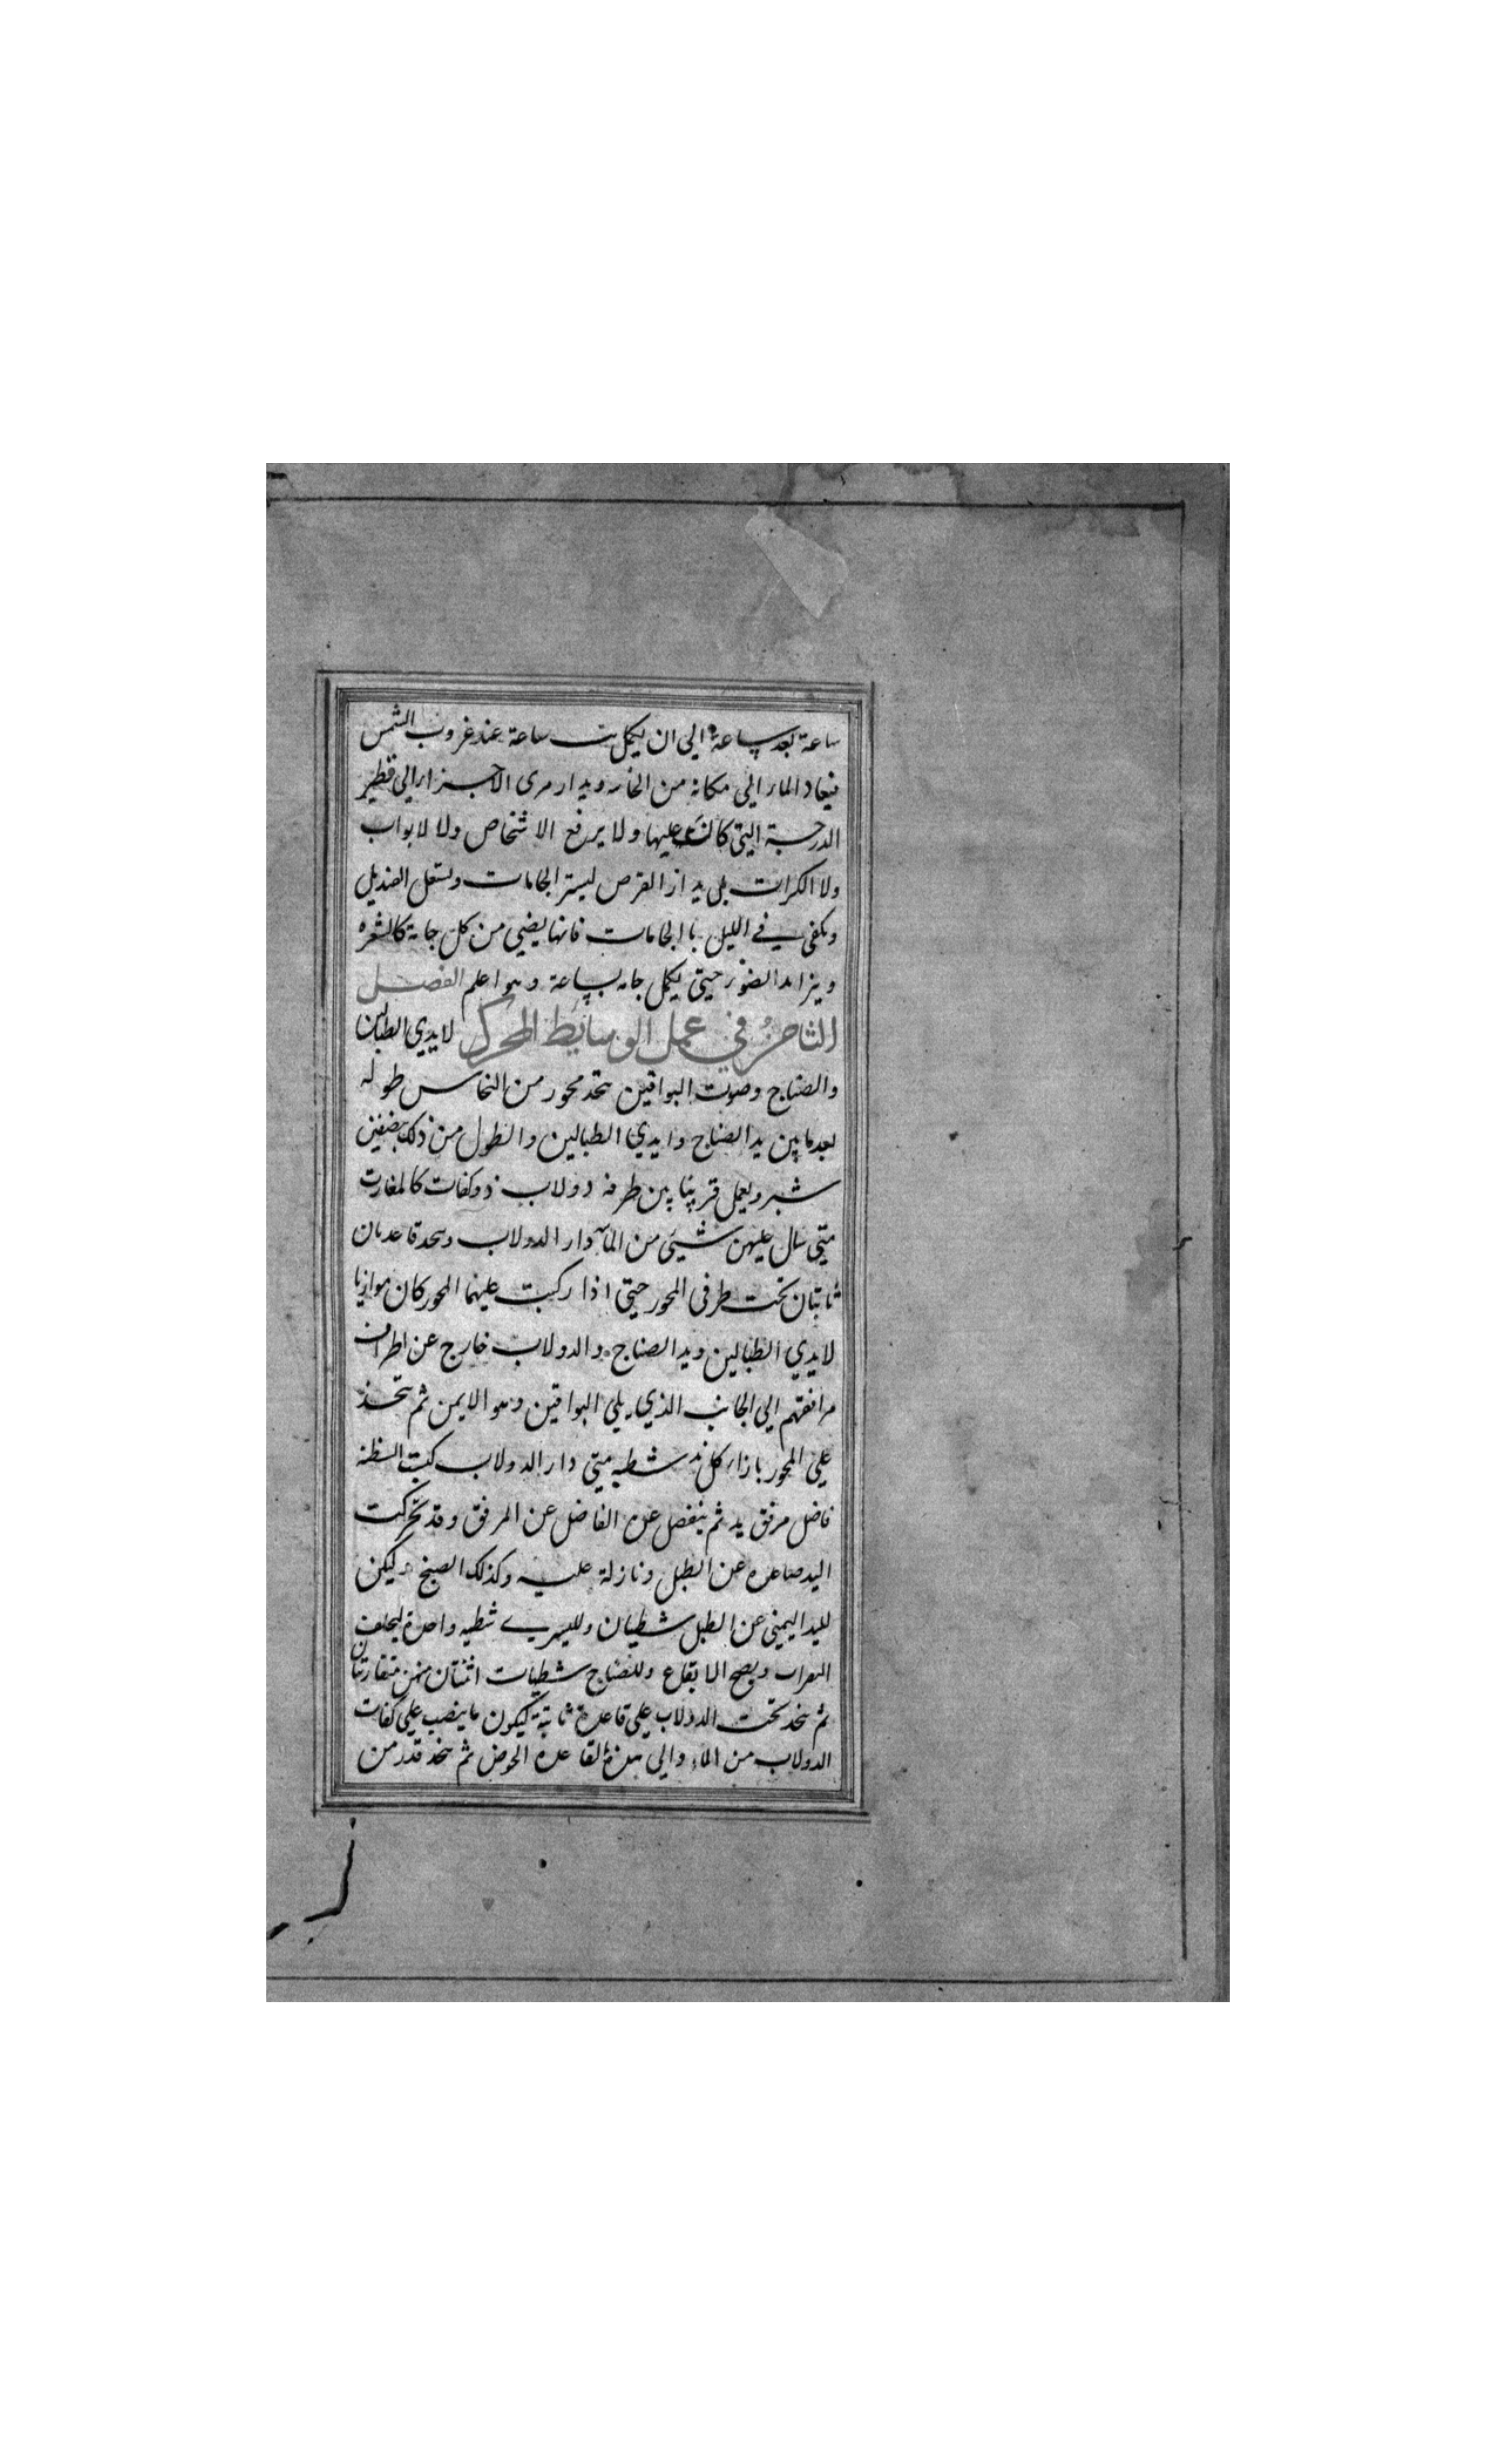 ساعة بعد ساعة الي ان يكمل ست ساعة عند غروب الشمس
فيعاد الماء الي مكانه من الخانه ويدار مرى الاجزاء الي قطير
الدرجة التي كانت عليها ولا يرفع الاشخاص ولا لابواب
ولا الكرات بل يدار القرص ليستر الجامات ويشعل القنديل
ويكفي في الليل بالجامات فانها يضيي من كل جامة كالشعره
ويزايد الضوء حتي يكمل جامه بساعة وهو اعلم الفصل
الثامن في عمل الوسائط المحركة لايدي الطبالين
والصناج وصوت البواقين يتخذ محور من النحاس طوله
بعد ما بين يد الصناج وايدي الطبالين واطول من ذلك بنصفين
شبر ويعمل قريبا من طرفه دولاب ذو كفات كالمغارف
متي سال عليهن شيئ من الماء دار الدولاب ويتخذ قاعدتان
ثابتتان تحت طرفي المحور حتي اذا ركبت عليهما المحور كان موازيا
لايدي الطبالين ويد الصناج والدولاب خارج عن اطراف
مرافقهم الي الجانب الذي يلي البواقين وهو الايمن ثم يتخذ
علي المحور بازاء كل يد شطيه متي دار الدولاب كبت الشظية
فاضل مرفق يد ثم ينفصل عن الفاضل عن المرفق وقد تحركت
اليد صاعده عن الطبل ونازلة عليه وكذلك الصنج وليكن
لليد اليمني عن الطبل شطيان ولليسري شطيه واحدة ليختلف
النقرات ويصح الايقاع وللصناج شطيات اثنتان منهن متقاربتان
ثم يتخذ تحت الدولاب علي قاعدة ثابتة ليكون ما ينصب علي كفات
الدولاب من الماء والي هذه القاعده الحوض ثم يتخذ قدر من